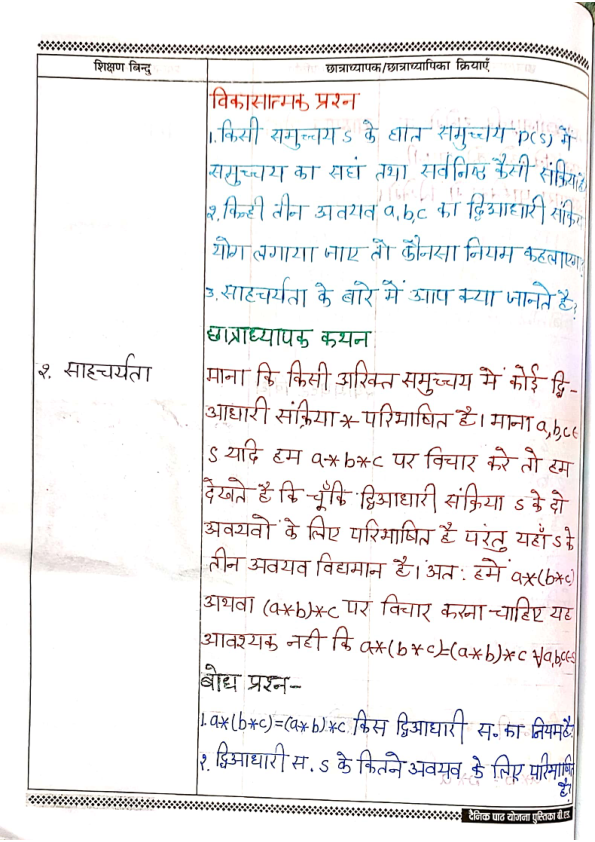 शिक्षण बिन्दु
छात्राध्यापक/छात्राध्यापिका क्रियाएँ
विकासात्मक प्रश्न
1. किसी समुच्चय S के घात समुच्चय P(S) में
समुच्चय का सघं तथा सर्वनिष्ठ कैसी संक्रिया है
२. किन्ही तीन अवयव a,b,c का द्विआधारी संक्रि
योग लगाया जाए तो कौनसा नियम कहलाएगा?
3. साहचर्यता के बारे में आप क्या जानते है?
छात्राध्यापक कथन
२. साहचर्यता
माना कि किसी अरिक्त समुच्चय में कोई द्वि-
आधारी संक्रिया * परिभाषित है। माना a,b,c ∈
S यदि हम a*b*c पर विचार करे तो हम
देखते है कि चूँकि द्विआधारी संक्रिया S के दो
अवयवों के लिए परिभाषित है परंतु यहाँ S के
तीन अवयव विद्यमान है। अत: हमें a*(b*c)
अथवा (a*b)*c पर विचार करना चाहिए यह
आवश्यक नही कि a*(b*c)=(a*b)*c ∀a,b,c∈S
बोध प्रश्न-
1. a*(b*c)=(a*b)*c किस द्विआधारी स. का नियम है?
२. द्विआधारी स. S के कितने अवयव के लिए परिभाषित
है?
दैनिक पाठ योजना पुस्तिका बी.एड.